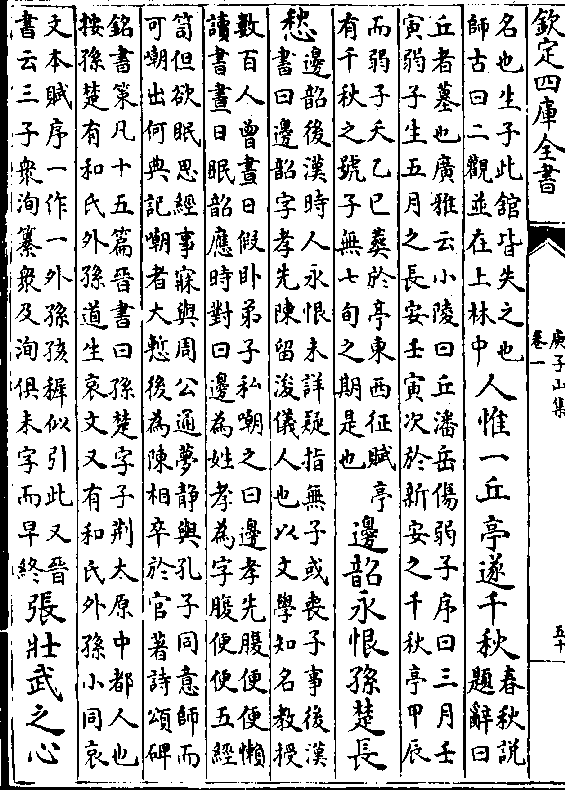 欽定四庫全書
庾子山集
卷一
五十
名也生子此館皆失之也
師古曰二觀並在上林中
人惟一丘亭遂千秋
春秋説
題辭曰
丘者墓也廣雅云小陵曰丘潘岳傷弱子序曰三月壬
寅弱子生五月之長安壬寅次於新安之千秋亭甲辰
而弱子夭乙巳葬於亭東西征賦亭
有千秋之號子無七旬之期是也
邊韶永恨孫楚長
愁
邊韶後漢時人永恨未詳疑指無子或喪子事後漢
書曰邊韶字孝先陳留浚儀人也以文學知名教授
數百人曾晝日假卧弟子私嘲之曰邊孝先腹便便懶
讀書晝日眠韶應時對曰邊為姓孝為字腹便便五經
笥但欲眠思經事寐與周公通夢静與孔子同意師而
可嘲出何典記嘲者大慙後為陳相卒於官著詩頌碑
銘書策凡十五篇晉書曰孫楚字子荆太原中都人也
按孫楚有和氏外孫道生哀文又有和氏外孫小同哀
文本賦序一作一外孫孩穉似引此又晉
書云三子衆洵纂衆及洵俱未字而早終
張壯武之心